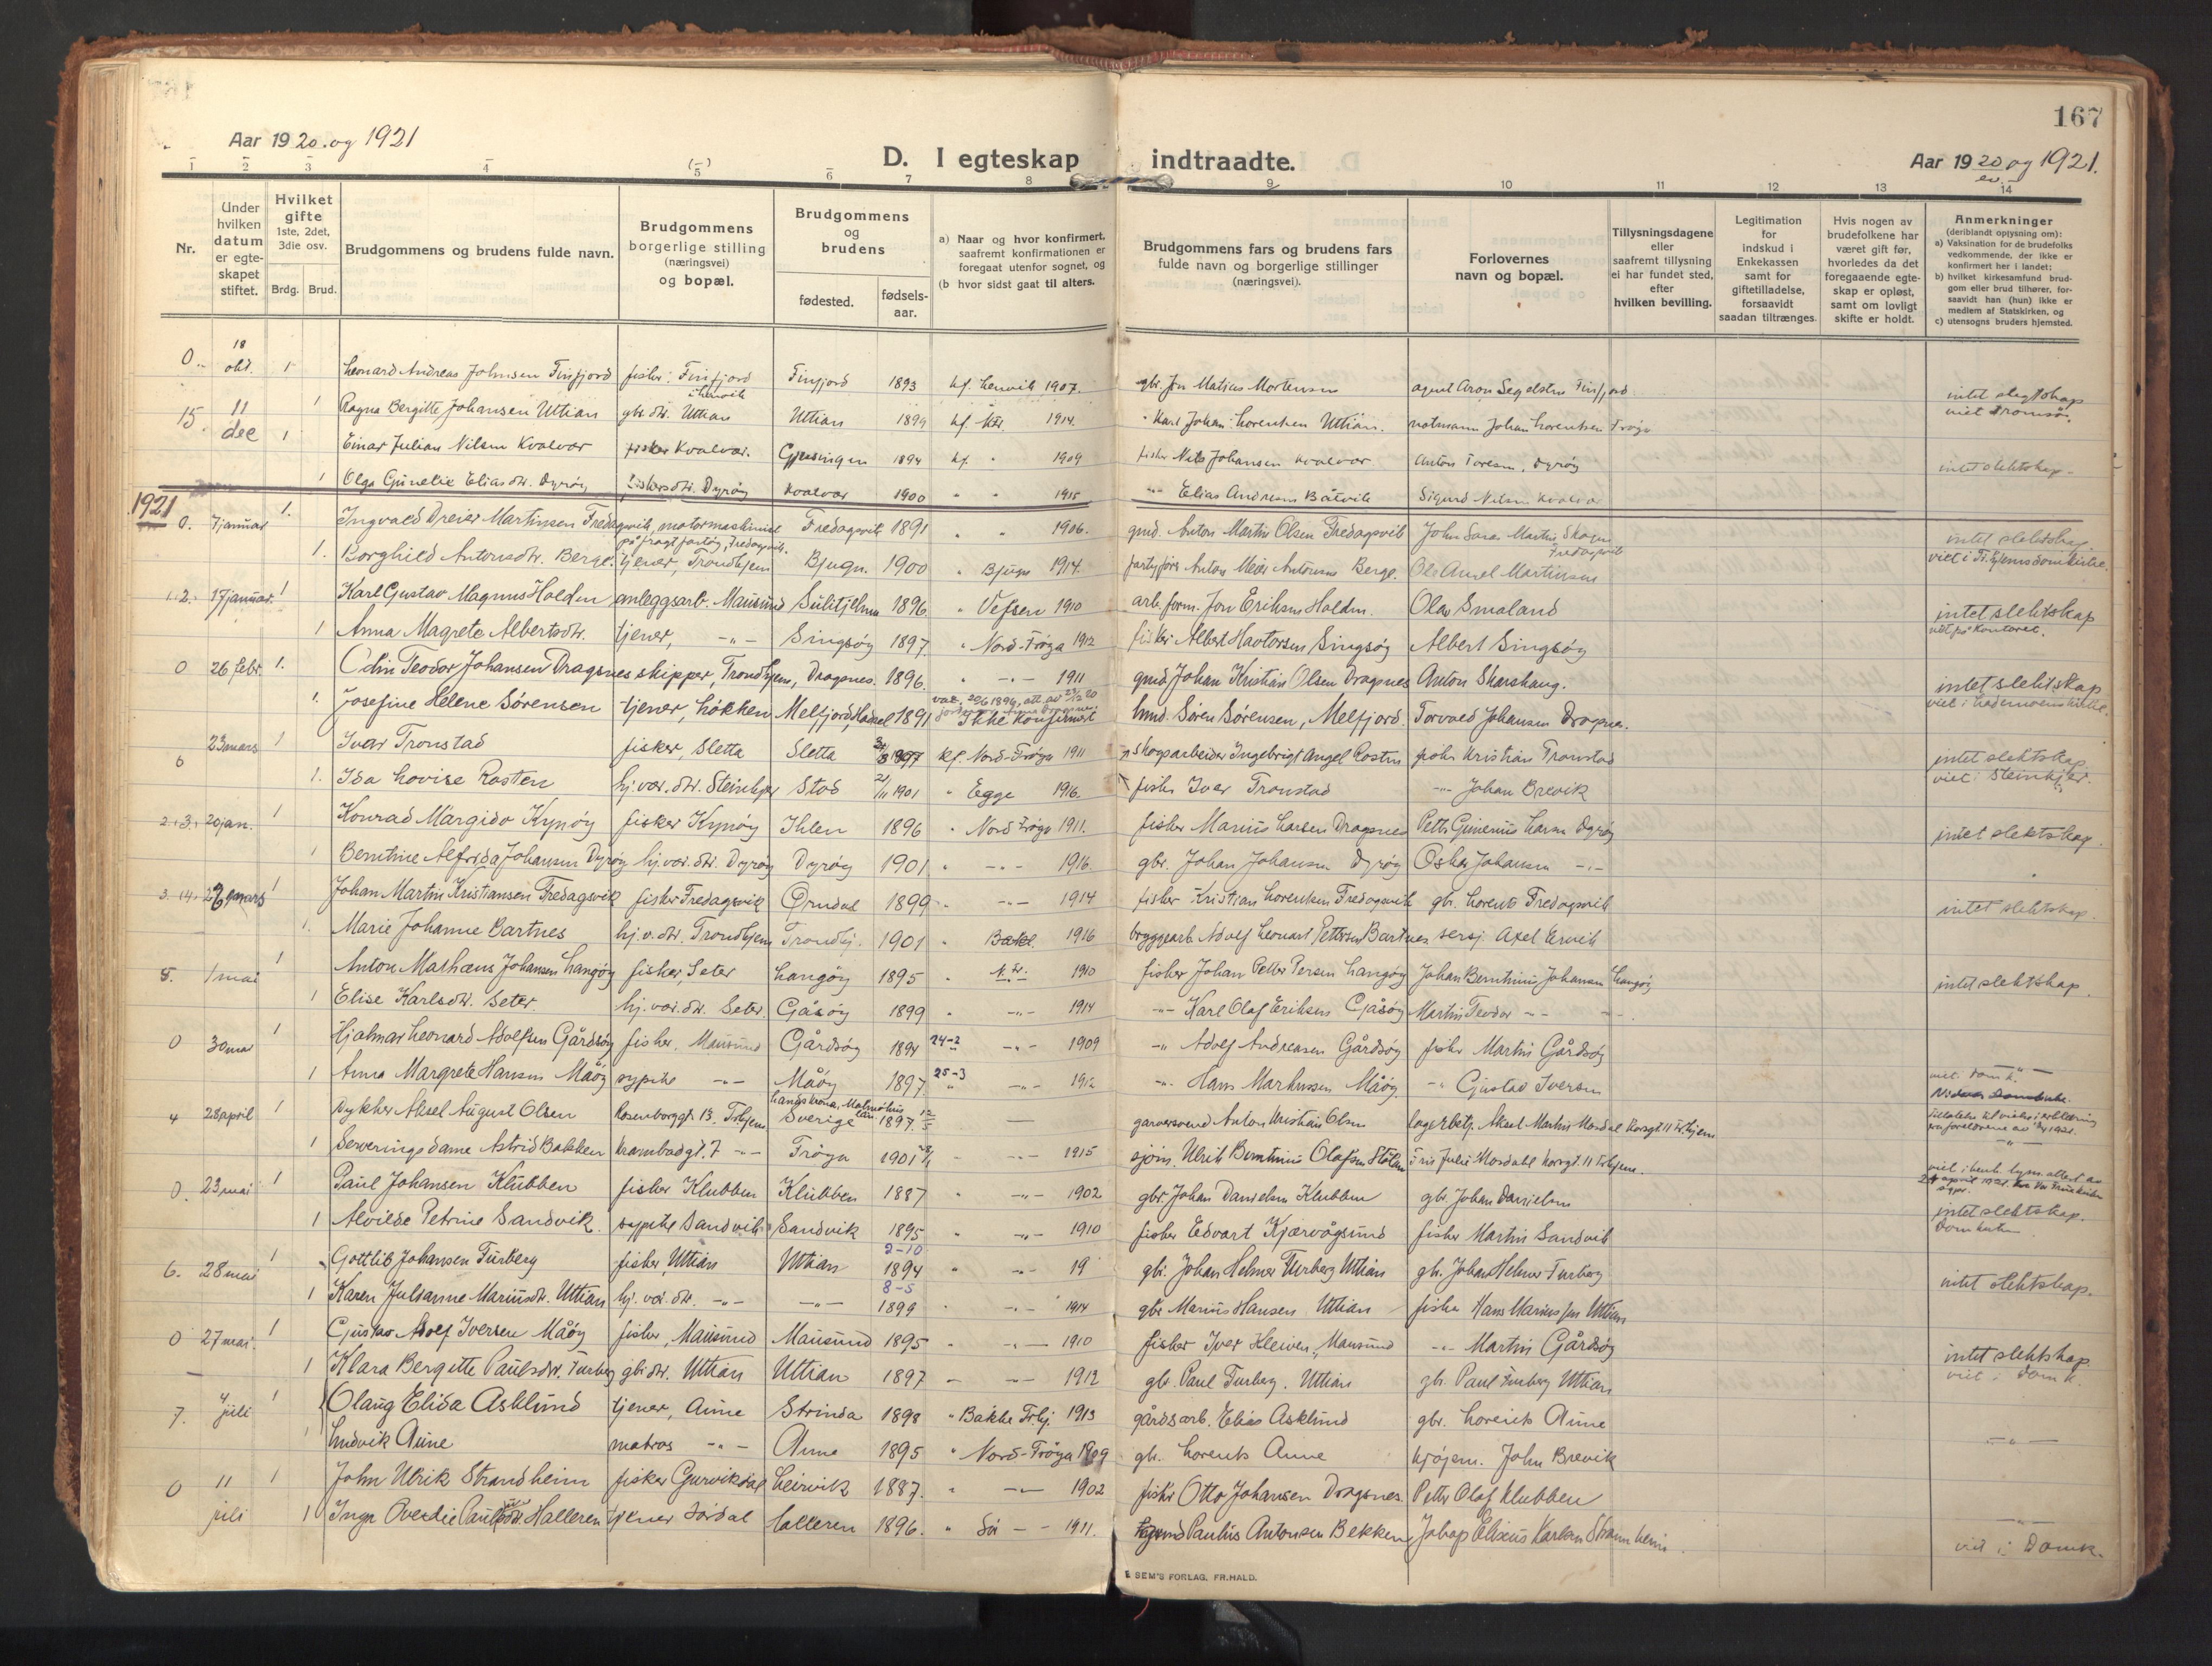 167
Aar 1920. og 1921
D. I egteskap indtraadte.
Aar 1920 og 1921.
1 2 3 4 5 6 7 8 9 10 11 12 13 14
Nr.
Under hvilken datum er egteskapet stiftet.
Hvilket gifte 1ste, 2det, 3die osv.
Brdg. Brud.
Brudgommens og brudens fulde navn.
Brudgommens borgerlige stilling (næringsvei) og bopæl.
Brudgommens og brudens
fødested. fødselsaar.
a) Naar og hvor konfirmert, saafremt konfirmationen er foregaat utenfor sognet, og
(b hvor sidst gaat til alters.
Brudgommens fars og brudens fars fulde navn og borgerlige stillinger (næringsvei).
Forlovernes navn og bopæl.
Tillysningsdagene eller saafremt tillysning ei har fundet sted, efter hvilken bevilling.
Legitimation for indskud i Enkekassen samt for giftetilladelse, forsaavidt saadan tiltrænges.
Hvis nogen av brudefolkene har været gift før, hvorledes da det foregaaende egteskap er opløst, samt om lovligt skifte er holdt.
Anmerkninger (deriblandt oplysning om):
a) Vaksination for de brudefolks vedkommende, der ikke er konfirmert her i landet;
b) hvilket kirkesamfund brudgom eller brud tilhører, forsaavidt han (hun) ikke er medlem af Statskirken, og
c) utensogns bruders hjemsted.
0. 18 okt. 1 Leonard Andreas Johnsen Finfjord fisker, Finfjord i Lenvik Finfjord 1893 kf. Lenvik 1907. gbr. Jon Matias Mortensen agent Aron Segelsten Finfjord intet slegtskap
1 Ragna Bergitte Johansen Uttian gbr.dtr. Uttian Uttian 1899 kf. 1914. " Karl Johan Lorentsen Uttian. Johan Lorentsen Frøya viet Tromsø.
15. 11 dec 1 Einar Julian Nilsen Kvalvær fisker Kvalvær. Gjæsingen 1894 kf. " 1909 fisker Nils Johansen Kvalvær Anton Toresen, Dyrøy intet slektskap
1 Olga Gunelie Eliasdtr. Dyrøy fiskersdtr. Dyrøy Kvalvær 1900 " " 1915 " Elias Andreasen Båtvik Sigurd Nilsen Kvalvær
1921
0. 7 januar 1. Ingvald Dreier Martinsen Fredagsvik, motormaskinist på fragtfartøy, Fredagsvik. Fredagsvik 1891 " " 1906. gmd. Anton Martin Olsen Fredagsvik John Martin Skagen Fredagsvik intet slektskap
1. Borghild Antonsdtr. Berge. tjener, Trondhjem Bjugn. 1900 " Bjugn 1914. Anton Meier Antonsen Berge. Ole Aunel Martinsen viet i Tr.hjems domkirke.
1. 2. 17 januar. 1 Karl Gustav Magnus Holden anleggsarb. Mausund Sulitjelma 1896. " Vefsen 1910 arb.form. Jon Eriksen Holden. Olav Smoland intet slektskap
1 Anna Magrete Albertsdtr. tjener, -"- Singsøy 1897. " Nord-Frøya 1912 fisker Albert Havtorsen Singsøy Albert Singsøy viet på kontoret.
0 26 febr. 1. Odin Teodor Johansen Dragsnes skipper, Trondhjem, Dragsnes. 1896. " -"- 1911 gmd. Johan Kristian Olsen Dragsnes Anton Skarshaug. intet slektskap
1. Josefine Helene Sørensen tjener, Løkken Melfjord, Hadsel 1891 Ikke konfirmert Søren Sørensen, Melfjord. Torvald Johansen Dragsnes. viet i Lademoens kirke.
0 23 mars 1 Ivar Tronstad fisker, Sletta Sletta 1897 kf. Nord-Frøya 1911 skogsarbeider Ingebrigt Angel Rosten Kristian Tronstad intet slektskap
1. Ida Lovise Rosten hj.vær.dtr. Steinkjer Stod 21/11 1901 " Egge 1916. fisker Iver Tronstad -"- Johan Brevik viet i Steinkjer.
2. 3. 20 jan. 1 Konrad Margido Kynøy fisker Kynøy Ihlen 1896 " Nord Frøya 1911. fisker Marius Larsen Dragsnes Petter Gunerius Larsen Dyrøy intet slektskap.
1 Berntine Alfrida Johansen Dyrøy hj.vær.dtr. Dyrøy Dyrøy 1901 " -"- 1916. gbr. Johan Johansen Dyrøy Oskar Johansen -"-
3. 4. 23 mars 1 Johan Martin Kristiansen Fredagsvik fisker Fredagsvik Ørndal 1899 " -"- 1914 fisker Kristian Lorentsen Fredagsvik gbr. Lorents Fredagsvik intet slektskap.
1. Marie Johanne Bartnes hj.v.dtr. Trondhjem Trondhj. 1901 " Bakl. 1916 bryggearb. Adolf Leonart Pettersen Bartnes sersj. Axel Ervik
5. 1 mai 1 Anton Mathæus Johansen Langøy fisker, Seter Langøy 1895 " N. Fr. 1910 fisker Johan Petter Persen Langøy Johan Berntinius Johansen Langøy intet slektskap.
1 Elise Karlsdtr. Seter. hj.vær.dtr. Seter. Gåsøy 1899 " -"- 1914 -"- Karl Olaf Eriksen Gjåsøy Martin Teodor -"-
0 30 mai 1 Hjalmar Leonard Adolfsen Gårdsøy fisker, Mausund Gårdsøy 24-2 1894 -"- 1909 -"- Adolf Andreasen Gårdsøy fisker Martin Gårdsøy
1 Anna Margrete Hansen Måøy sypike -"- Måøy 25-3 1897. -"- 1912 -"- Hans Markussen Måøy. -"- Gjustad Iversen viet. Domk.
4 28 april 1 Dykker Aksel August Olsen Rosenborggt. 13. Trhjem Landskrona, Malmöhus län Sverige 1897. — garversvend Anton Kristian Olsen lagerbetj. Aksel Martin Mosdal Korsgt 11 Trhjem
1 Serveringsdame Astrid Bakken Krambodgt. 7 -"- Frøya 1901 " -"- 1915 sjøm. Ulrik Berntinius Olafsen Stølan Fru Julie Mosdahl Korsgt. 11 Trhjem. -"-
0. 23 mai 1 Paul Johansen Klubben fisker Klubben Klubben 1887 " -"- 1902 gbr. Johan Danielsen Klubben gbr. Johan Danielsen
1 Alvilde Petrine Sandvik. sypike Sandvik Sandvik 1895 " -"- 1910 fisker Edvart Kjærvågsund fisker Martin Sandvik intet slektskap. Domkirken
6. 28 mai 1 Gottlib Johansen Furberg fisker, Uttian Uttian 2-10 1894 " -"- 19 gbr. Johan Helmer Furberg Uttian gbr. Johan Helmer Furberg intet slektskap.
1 Karen Julianne Mariusdtr. Uttian hj.vær.dtr. -"- -"- 8-5 1899 " -"- 1914 gbr. Marius Hansen Uttian fisker Hans Mariussen Uttian
0 27 mai. 1 Gjustav Adolf Iversen Måøy fisker, Mausund Mausund 1895 " -"- 1910 fisker Iver Kleiven, Mausund -"- Martin Gårdsøy intet slektskap.
1 Klara Bergitte Paulsdtr. Furberg gbr.dtr. Uttian Uttian 1897 " -"- 1912 gbr. Paul Furberg. Uttian gbr. Paul Furberg Uttian viet i Domk.
7. 4 juli 1 Olaug Elida Asklund tjener, Aune Strinda 1898 " Bakke Trhj. 1913 gårdsarb. Elias Asklund gbr. Lorents Aune
1 Ludvik Aune matros -"- Aune 1895 " Nord-Frøya 1909 gbr. Lorents Aune kjøpm. John Brevik -"-
0 11 juli 1 John Ulrik Strandheim fisker Gurvikdal Leirvik 1887. " -"- 1902 fisker Otto Johansen Dragsnes. Petter Olaf Klubben
1 Inga Ovedie Paulsdtr. Halleren tjener Sørdal Halleren 1896. " Sør - - 1911. Paulus Antonsen Bekken Jakop Elisæus Karlsen Strannheim -"- viet i Domk.
E SEM'S FORLAG, FR.HALD.